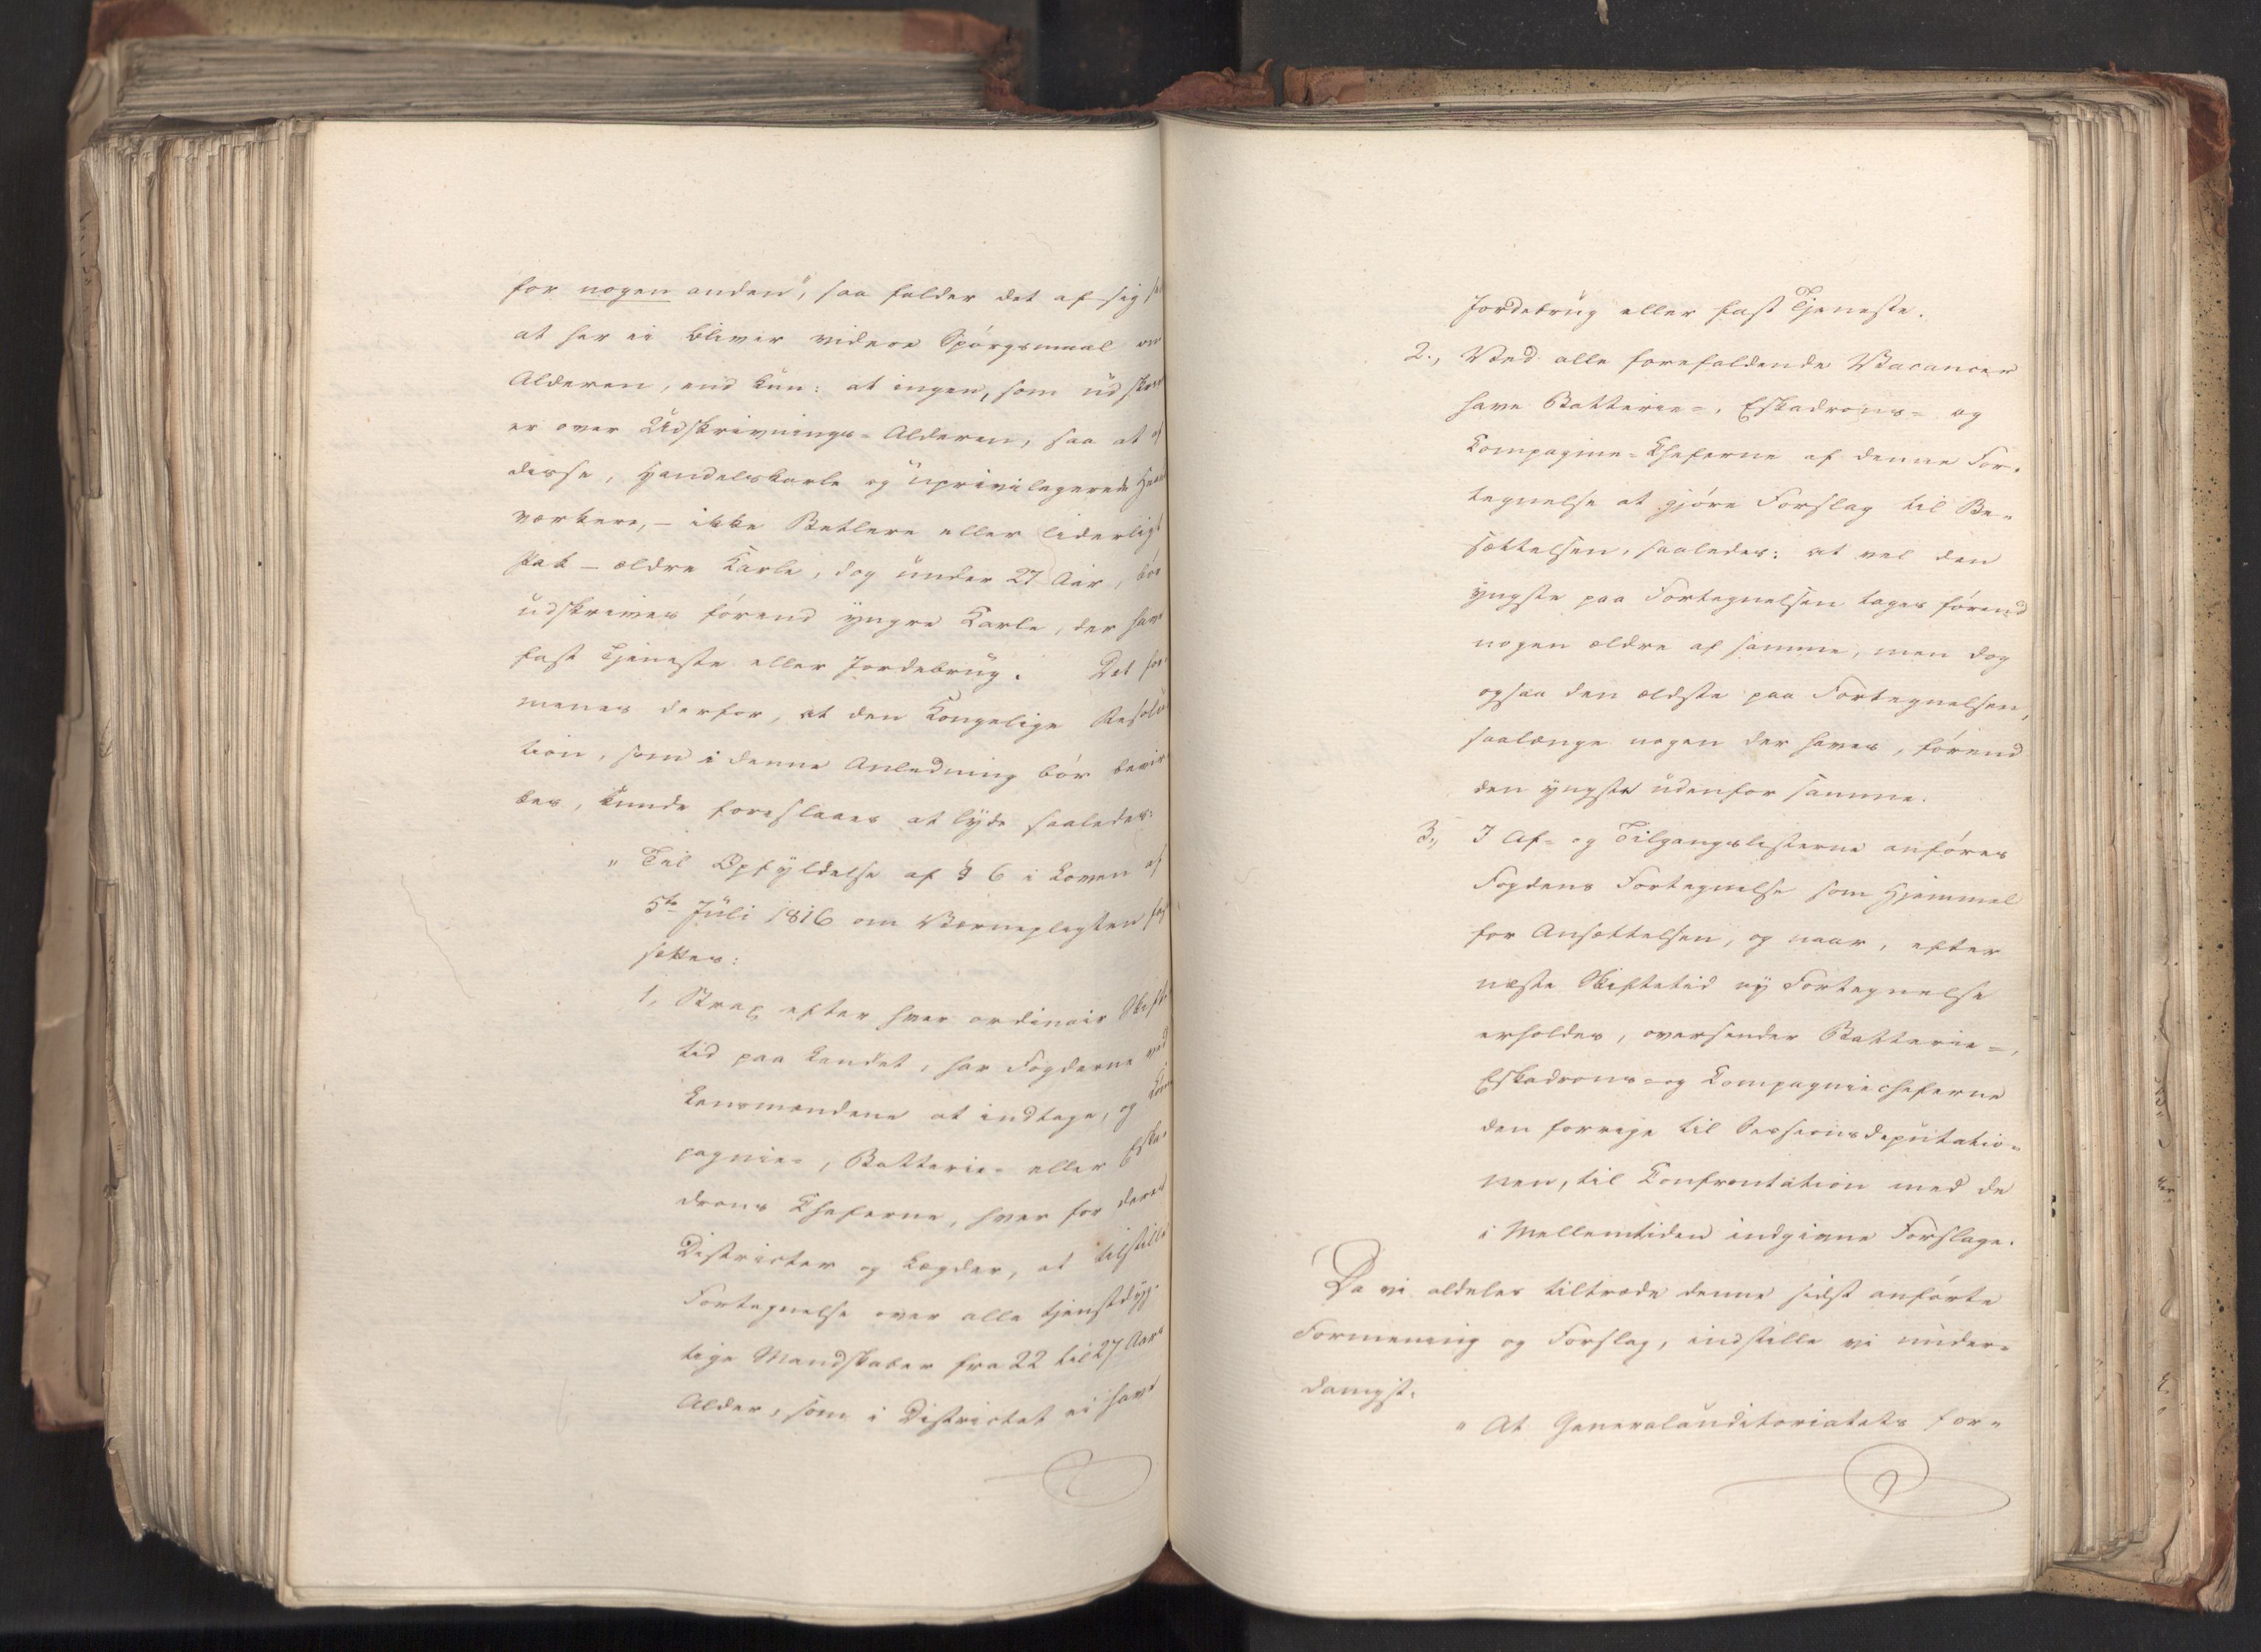 for nogen anden", saa falder det af sig
at her ei bliver videre Spørgsmaal om
Alderen, end kun: at ingen, som udskr
er over Udskrivnings-Alderen, saa at af
disse, Handelskarle og uprivilegerede Haand
værkere, - ikke Betlere eller liderligt
Pak - ældre Karle, dog under 27 Aar, bør
udskrives førend yngre Karle, der have
fast Tjeneste eller Jordebrug. Det for
menes derfor, at den Kongelige Resolu
tion, som i denne Anledning bør bevir
kes, kunde foreslaaes at lyde saaledes:
"Til Opfyldelse af § 6 i Loven af
5te Juli 1816 om Værnepligten fast
sættes:
1, Strax efter hver ordinair Skifte
tid paa Landet, har Fogderne ved
Lensmændene at indtage, og Kom
pagnie-, Batterie- eller Eska-
drons Cheferne, hver for deres
Districter og Lægder, at tilstille
Fortegnelse over alle tjenstdyg-
tige Mandskaber fra 22 til 27 Aars
Alder, som i Districtet ei have
Jordebrug eller fast Tjeneste.
2., Ved alle forefaldende Vacancer
have Batterie-, Eskadrons- og
Compagnie-Cheferne af denne For-
tegnelse at gjøre Forslag til Be-
sættelsen, saaledes: at vel den
yngste paa Fortegnelsen tages førend
nogen ældre af samme, men dog
ogsaa den ældste paa Fortegnelsen,
saalænge nogen der haves, førend
den yngste udenfor samme.
3., I Af- og Tilgangslisterne anføres
Fogdens Fortegnelse som Hjemmel
for Ansættelsen, og naar, efter
næste Skiftetid ny Fortegnelse
erholdes, oversender Batterie-,
Eskadrons- og Compagniecheferne
den forrige til Sessionsdeputatio-
nen, til Confrontation med de
i Mellemtiden indgivne Forslage.
Da vi aldeles tiltræde denne sidst anførte
Formening og Forslag, indstille vi under-
danigst:
"At Generalauditoriatets for-